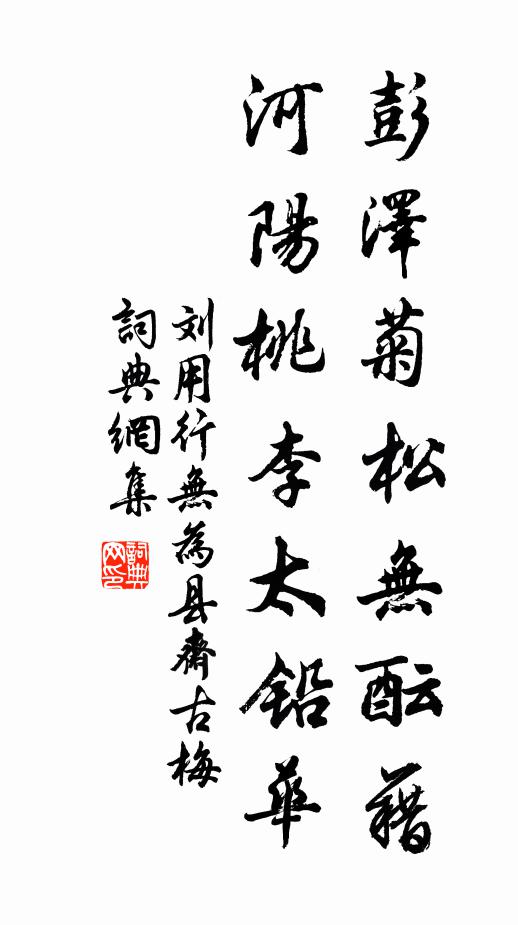 彭澤菊松無酝藉
河陽桃李太铅華
刘用行無為县齋古梅
詞典網集
詞典网印